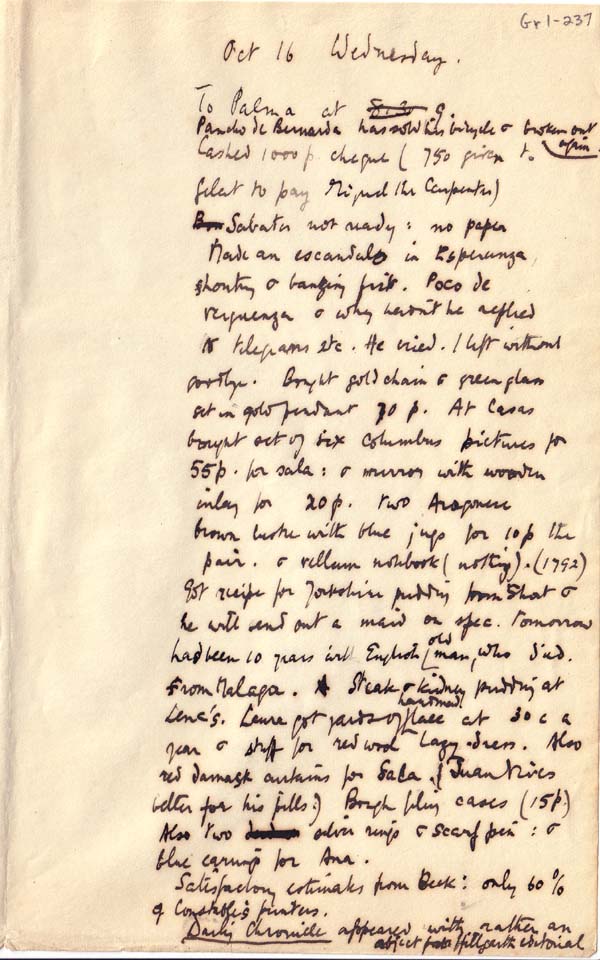 Gr1-237
Oct 16 Wednesday.
To Palma at 8.30 9
Pancho de Bernarda has sold his bicycle & broken out again.
Cashed 1000 p. cheque (750 given to
Gelat to pay Miguel the Carpenter)
Sabater not ready: no paper
Made an escandalo in Esperanza,
shouting & banging fist. Poco de
verguenza & why hadn't he replied
to telegrams etc. He cried. I left without
goodbye. Bought gold chain & green glass
set in gold pendant 70 p. At Casas
bought set of six Columbus pictures for
55p. for sala: & mirror with wooden
inlay for 20p. two Aragonese
brown lustre with blue jugs for 10p the
pair. & vellum notebook (nothing). (1792)
Got recipe for Yorkshire pudding from Short &
he will send out a maid on spec. tomorrow
had been 10 years with English old man, who died.
From Malaga. Steak & kidney pudding at
Lena's. Laura got yards of handmade lace at 30 c a
year & stuff for red wool Lazy-dress. Also
red damask curtains for Sala. (Juan Vives
better for his pills:) Bough pliny cases (15p.)
Also two silver rings & scarf pin: &
blue earrings for Ana.
Satisfactory estimates from Beck: only 60%
of Constable's printers.
Daily Chronicle appeared with rather an
abject Hillgarth editorial